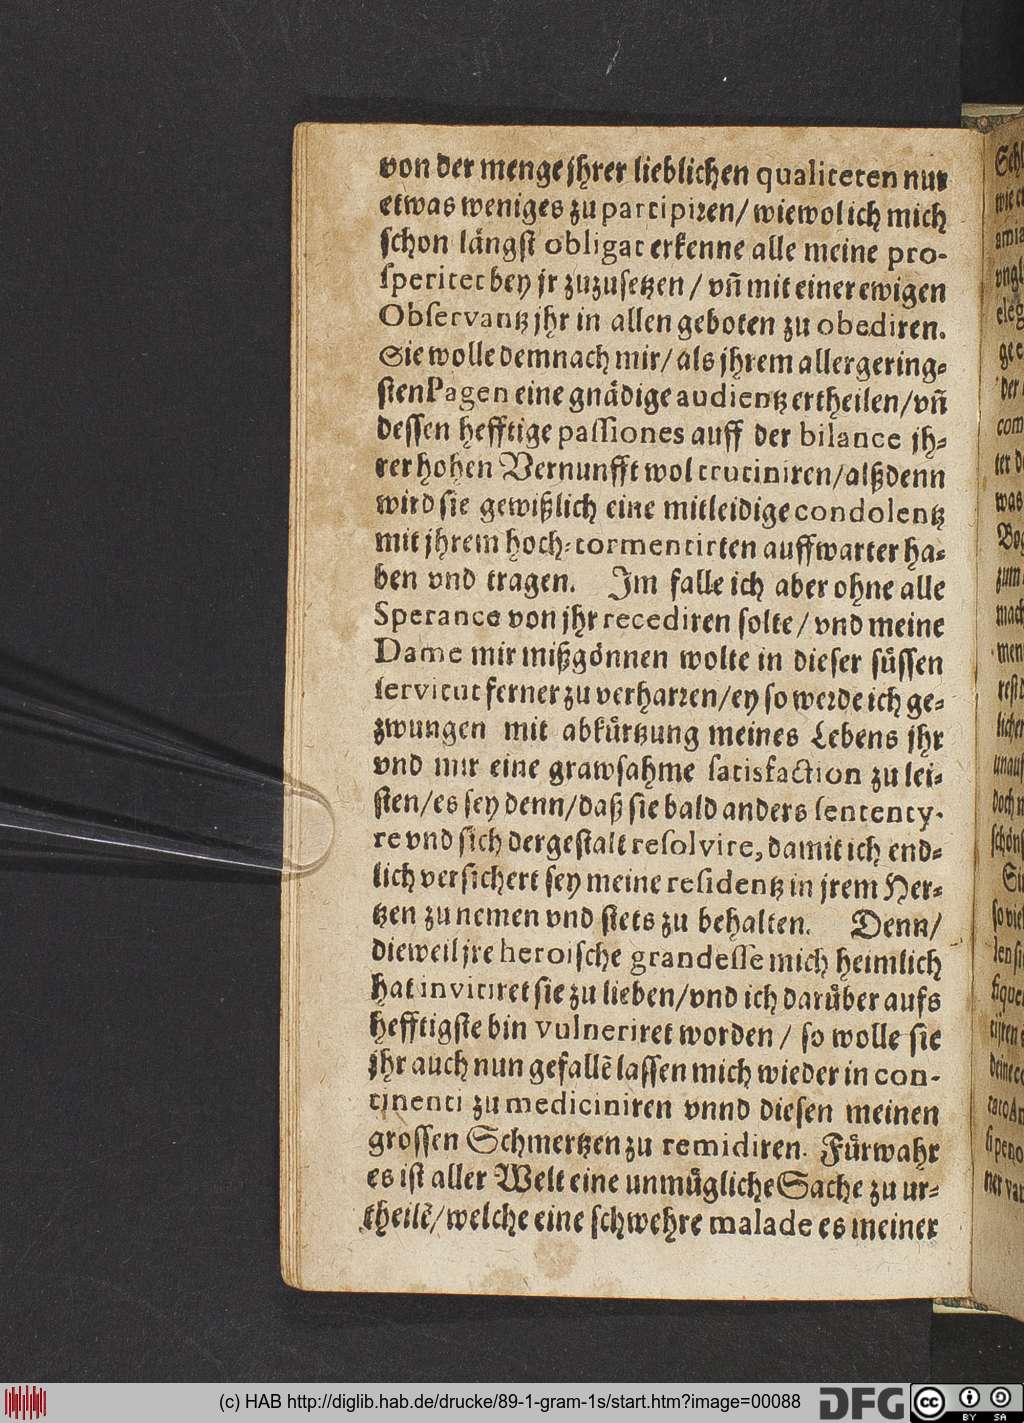 von der menge jhrer lieblichen qualiteten nur
etwas weniges zu partipiren/ wiewol ich mich
schon längst obligat erkenne alle meine pro-
speritet bey jr zuzusetzen / vñ mit einer ewigen
Observantz jhr in allen geboten zu obediren.
Sie wolle demnach mir/ als jhrem allergering-
sten Pagen eine gnädige audientz ertheilen/ vñ
dessen hefftige passiones auff der bilance jh-
rer hohen Vernunfft wol trutiniren/ alßdenn
wird sie gewißlich eine mitleidige condolentz
mit jhrem hoch-tormentirten auffwarter ha-
ben vnd tragen. Im falle ich aber ohne alle
Sperance von jhr recediren solte/ vnd meine
Dame mir mißgönnen wolte in dieser süssen
servitut ferner zu verharren/ ey so werde ich ge-
zwungen mit abkürtzung meines Lebens jhr
vnd mir eine grawsahme satisfaction zu lei-
sten/ es sey denn/ daß sie bald anders sententy-
re vnd sich dergestalt resolvire, damit ich end-
lich versichert sey meine residentz in jrem Her-
tzen zu nemen vnd stets zu behalten. Denn/
dieweil jre heroische grandesse mich heimlich
hat invitiret sie zu lieben/ vnd ich darüber aufs
hefftigste bin vulneriret worden / so wolle sie
jhr auch nun gefallẽ lassen mich wieder in con-
tinenti zu mediciniren vnnd diesen meinen
grossen Schmertzen zu remidiren. Fürwahr
es ist aller Welt eine unmügliche Sache zu ur-
theilẽ/ welche eine schwehre malade es meiner
(c) HAB http://diglib.hab.de/drucke/89-1-gram-1s/start.htm?image=00088
DFG
cc
BY SA